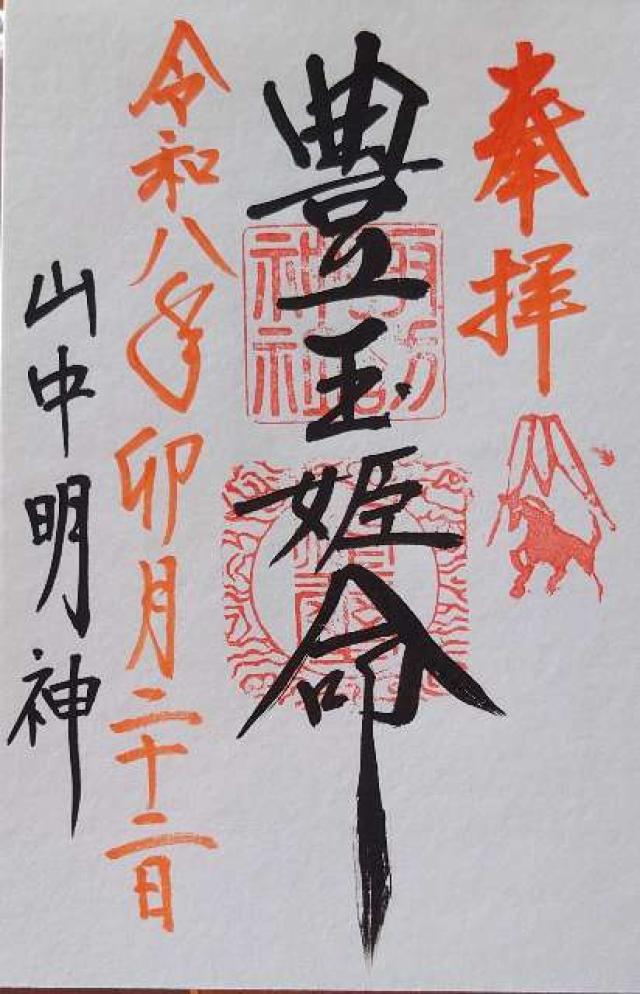 奉拝
豊玉姫命
諏訪
神社
令和八年卯月二十二日
山中明神